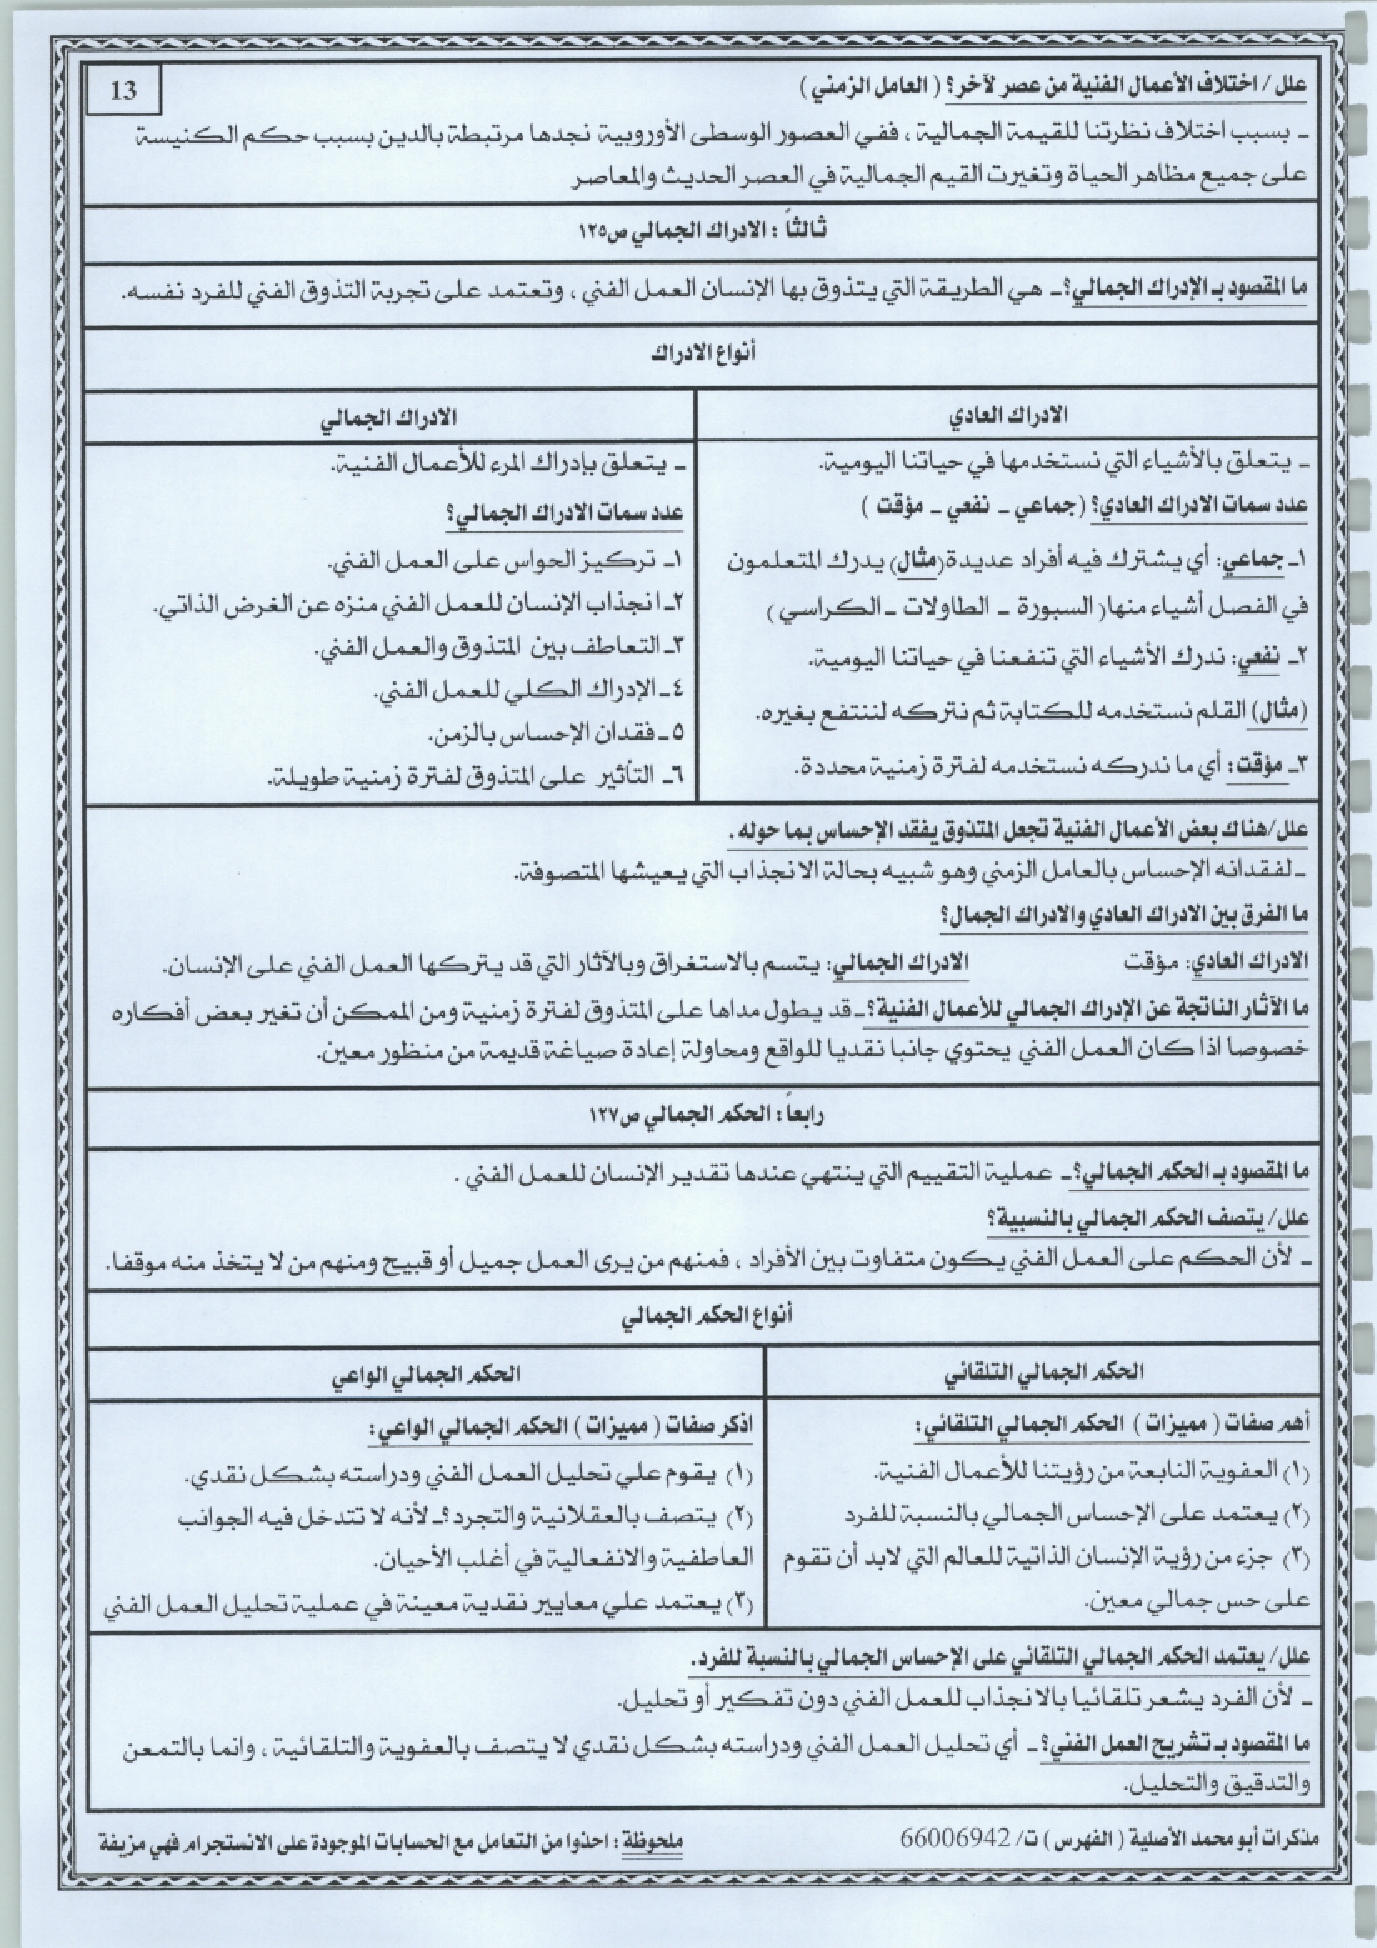 13
علل / اختلاف الأعمال الفنية من عصر لآخر؟ ( العامل الزمني )
ـ بسبب اختلاف نظرتنا للقيمة الجمالية ، ففي العصور الوسطى الأوروبية نجدها مرتبطة بالدين بسبب حكم الكنيسة
على جميع مظاهر الحياة وتغيرت القيم الجمالية في العصر الحديث والمعاصر
ثالثاً : الادراك الجمالي ص١٢٥
ما المقصود بـ الإدراك الجمالي؟ـ هي الطريقة التي يتذوق بها الإنسان العمل الفني ، وتعتمد على تجربة التذوق الفني للفرد نفسه.
أنواع الادراك
الادراك العادي
ـ يتعلق بالأشياء التي نستخدمها في حياتنا اليومية.
عدد سمات الادراك العادي؟ (جماعي ـ نفعي ـ مؤقت )
١ـ جماعي: أي يشترك فيه أفراد عديدة(مثال) يدرك المتعلمون
في الفصل أشياء منها( السبورة ـ الطاولات ـ الكراسي )
٢ـ نفعي: ندرك الأشياء التي تنفعنا في حياتنا اليومية.
(مثال) القلم نستخدمه للكتابة ثم نتركه لننتفع بغيره.
٣ـ مؤقت: أي ما ندركه نستخدمه لفترة زمنية محددة.
الادراك الجمالي
ـ يتعلق بإدراك المرء للأعمال الفنية.
عدد سمات الادراك الجمالي؟
١ـ تركيز الحواس على العمل الفني.
٢ـ انجذاب الإنسان للعمل الفني منزه عن الغرض الذاتي.
٣ـ التعاطف بين المتذوق والعمل الفني.
٤ـ الإدراك الكلي للعمل الفني.
٥ـ فقدان الإحساس بالزمن.
٦ـ التأثير على المتذوق لفترة زمنية طويلة.
علل/هناك بعض الأعمال الفنية تجعل المتذوق يفقد الإحساس بما حوله .
ـ لفقدانه الإحساس بالعامل الزمني وهو شبيه بحالة الانجذاب التي يعيشها المتصوفة.
ما الفرق بين الادراك العادي والادراك الجمال؟
الادراك العادي: مؤقت الادراك الجمالي: يتسم بالاستغراق وبالآثار التي قد يتركها العمل الفني على الإنسان.
ما الآثار الناتجة عن الإدراك الجمالي للأعمال الفنية؟ـ قد يطول مداها على المتذوق لفترة زمنية ومن الممكن أن تغير بعض أفكاره
خصوصا اذا كان العمل الفني يحتوي جانبا نقديا للواقع ومحاولة إعادة صياغة قديمة من منظور معين.
رابعاً : الحكم الجمالي ص١٢٧
ما المقصود بـ الحكم الجمالي؟ـ عملية التقييم التي ينتهي عندها تقدير الإنسان للعمل الفني .
علل/ يتصف الحكم الجمالي بالنسبية؟
ـ لأن الحكم على العمل الفني يكون متفاوت بين الأفراد ، فمنهم من يرى العمل جميل أو قبيح ومنهم من لا يتخذ منه موقفا.
أنواع الحكم الجمالي
الحكم الجمالي التلقائي
أهم صفات ( مميزات ) الحكم الجمالي التلقائي:
(١) العفوية النابعة من رؤيتنا للأعمال الفنية.
(٢) يعتمد على الإحساس الجمالي بالنسبة للفرد
(٣) جزء من رؤية الإنسان الذاتية للعالم التي لابد أن تقوم
على حس جمالي معين.
الحكم الجمالي الواعي
اذكر صفات ( مميزات ) الحكم الجمالي الواعي:
(١) يقوم علي تحليل العمل الفني ودراسته بشكل نقدي.
(٢) يتصف بالعقلانية والتجرد ؟ـ لأنه لا تتدخل فيه الجوانب
العاطفية والانفعالية في أغلب الأحيان.
(٣) يعتمد علي معايير نقدية معينة في عملية تحليل العمل الفني
علل/ يعتمد الحكم الجمالي التلقائي على الإحساس الجمالي بالنسبة للفرد.
ـ لأن الفرد يشعر تلقائيا بالانجذاب للعمل الفني دون تفكير أو تحليل.
ما المقصود بـ تشريح العمل الفني؟ ـ أي تحليل العمل الفني ودراسته بشكل نقدي لا يتصف بالعفوية والتلقائية ، وانما بالتمعن
والتدقيق والتحليل.
مذكرات أبو محمد الأصلية ( الفهرس ) ت/ 66006942 ملحوظة : احذوا من التعامل مع الحسابات الموجودة على الانستجرام فهي مزيفة